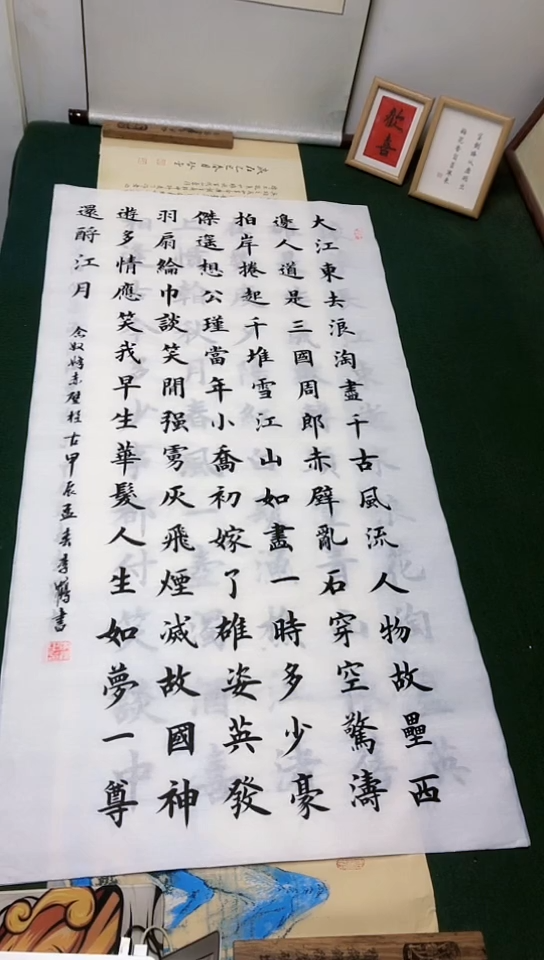 大江東去浪淘盡千古風流人物故壘西
邊人道是三國周郎赤壁亂石穿空驚濤
拍岸捲起千堆雪江山如畫一時多少豪
傑遥想公瑾當年小喬初嫁了雄姿英發
羽扇綸巾談笑間强虜灰飛煙滅故國神
遊多情應笑我早生華髮人生如夢一尊
還酹江月
念奴嬌赤壁懷古甲辰孟春李鶴書
歡喜